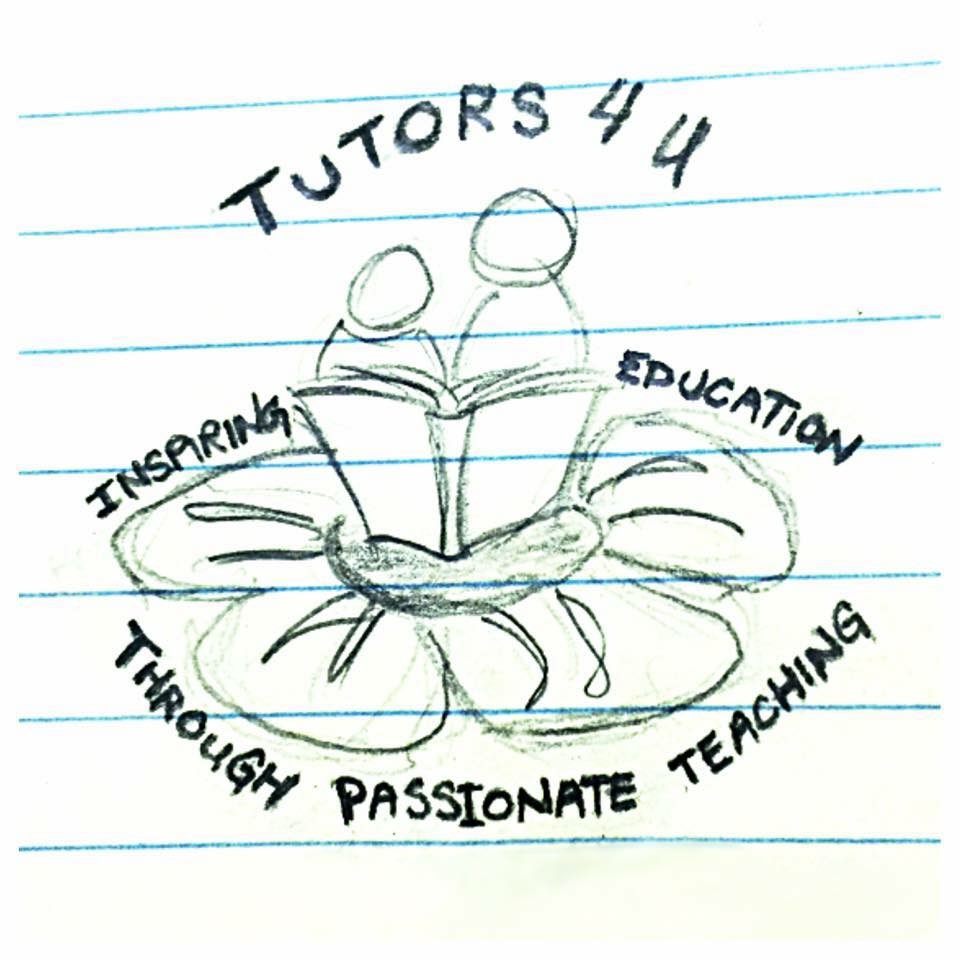 TUTORS 4 U
INSPIRING EDUCATION
THROUGH PASSIONATE TEACHING